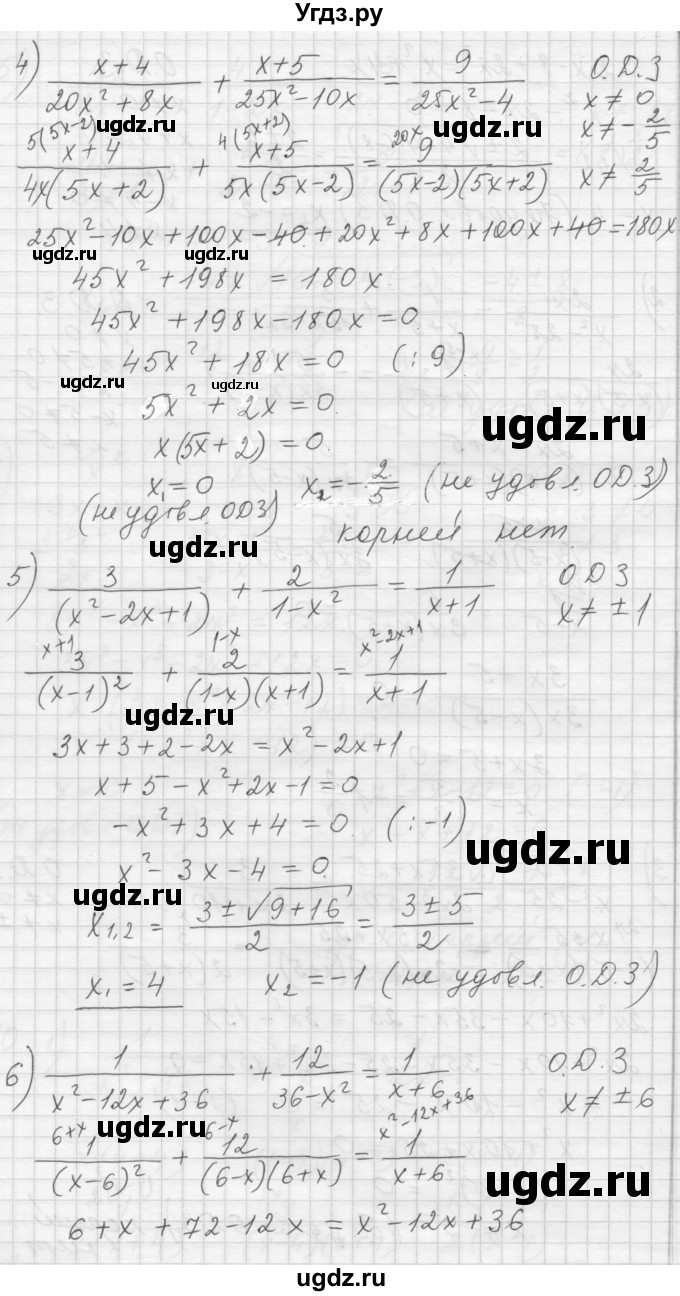 Угдз.ру
4) (x+4)/(20x²+8x) + (x+5)/(25x²-10x) = 9/(25x²-4) О.Д.З
x≠0
5(5x-2) 4(5x+2) 20x x≠-2/5
(x+4)/(4x(5x+2)) + (x+5)/(5x(5x-2)) = 9/((5x-2)(5x+2)) x≠2/5
ugdz.ru ugdz.ru
25x²-10x+100x-40+20x²+8x+100x+40=180x
ugdz.ru ugdz.ru
45x²+198x = 180x
45x²+198x-180x=0
45x²+18x=0 (:9)
ugdz.ru ugdz.ru
5x²+2x=0.
ugdz.ru
x(5x+2)=0.
x₁=0 x₂=-2/5 (не удовл. ОДЗ)
(не удовл. ОДЗ) корней нет.
ugdz.ru
5) 3/(x²-2x+1) + 2/(1-x²) = 1/(x+1) ОДЗ
x≠±1
ugdz.ru
x+1 1-x x²-2x+1
3/(x-1)² + 2/((1-x)(x+1)) = 1/(x+1)
ugdz.ru
3x+3+2-2x = x²-2x+1
x+5-x²+2x-1=0
-x²+3x+4=0. (:-1)
ugdz.ru
x²-3x-4=0.
ugdz.ru
x₁,₂ = (3±√(9+16))/2 = (3±5)/2
x₁=4 x₂=-1 (не удовл. О.Д.З)
6) 1/(x²-12x+36) + 12/(36-x²) = 1/(x+6) О.Д.З
x≠±6
6+x 6-x x²-12x+36
ugdz.ru
1/(x-6)² + 12/((6-x)(6+x)) = 1/(x+6)
ugdz.ru
6+x+72-12x = x²-12x+36
ugdz.ru